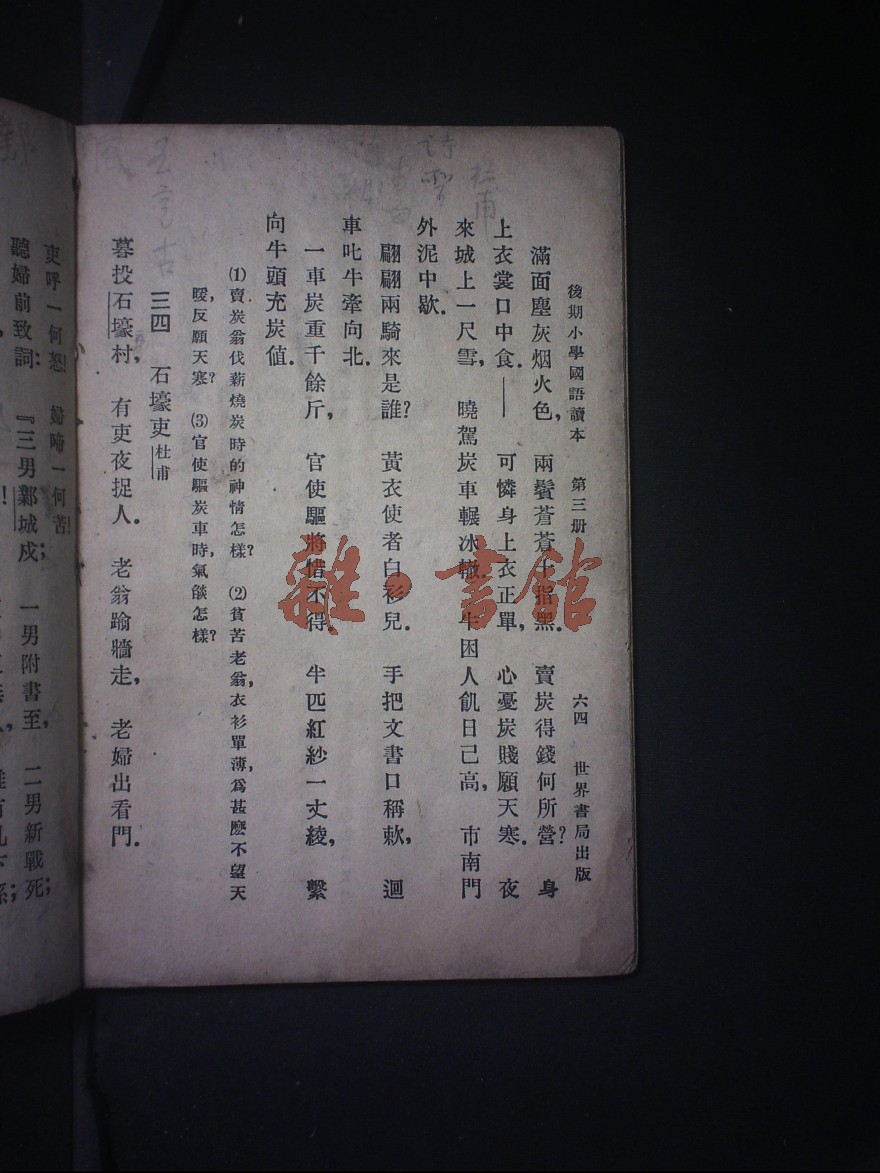 後期小學國語讀本　第三册　六四　世界書局出版
滿面塵灰烟火色，兩鬢蒼蒼十指黑．賣炭得錢何所營？身
上衣裳口中食．——可憐身上衣正單，心憂炭賤願天寒．夜
來城上一尺雪，曉駕炭車輾冰轍．牛困人飢日已高，市南門
外泥中歇．
翩翩兩騎來是誰？黃衣使者白衫兒．手把文書口稱敕，迴
車叱牛牽向北．
一車炭重千餘斤，官使驅將惜不得．半匹紅紗一丈綾，繫
向牛頭充炭值．
⑴賣炭翁伐薪燒炭時的神情怎樣？⑵貧苦老翁，衣衫單薄，爲甚麽不望天
暖，反願天寒？⑶官使驅炭車時，氣燄怎樣？
三四　石壕吏 杜甫
暮投石壕村，有吏夜捉人．老翁踰牆走，老婦出看門．
吏呼一何怒！婦啼一何苦！
聽婦前致詞：『三男鄴城戍；一男附書至，二男新戰死；
詩聖
杜甫
雜·書館